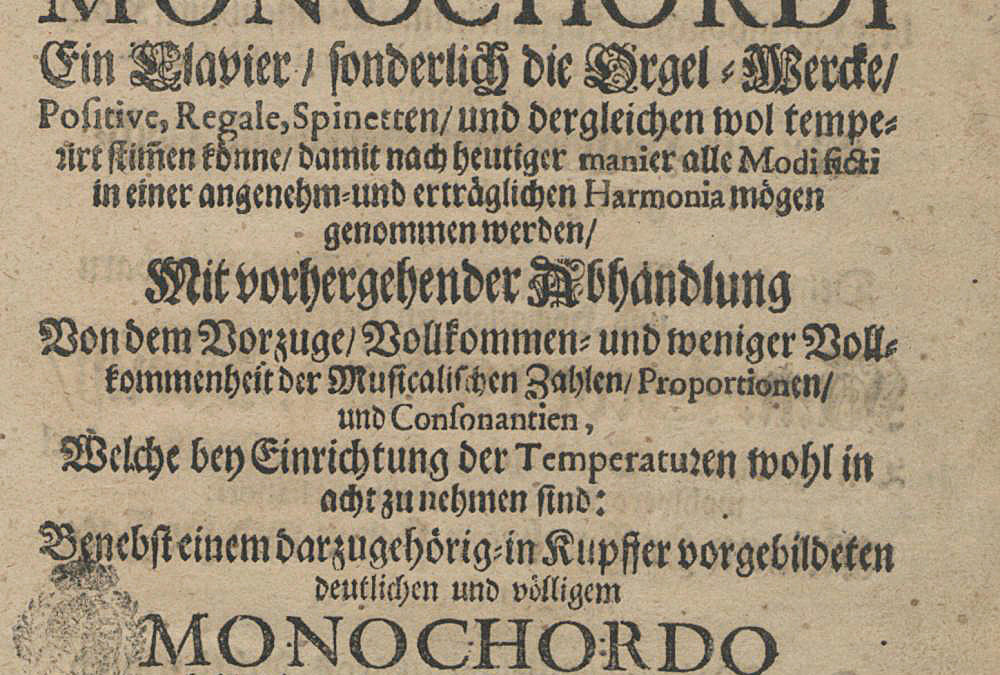 MONOCHORDI
Ein Clavier / sonderlich die Orgel-Wercke/
Positive, Regale, Spinetten/ und dergleichen wol tempe-
rirt stim̃en könne/ damit nach heutiger manier alle Modi ficti
in einer angenehm-und erträglichen Harmonia mögen
genommen werden/
Mit vorhergehender Abhandlung
Von dem Vorzuge/ Vollkommen- und weniger Voll-
kommenheit der Musicalischen Zahlen/ Proportionen/
und Consonantien,
Welche bey Einrichtung der Temperaturen wohl in
acht zu nehmen sind:
Benebst einem darzugehörig-in Kupffer vorgebildeten
deutlichen und völligem
MONOCHORDO